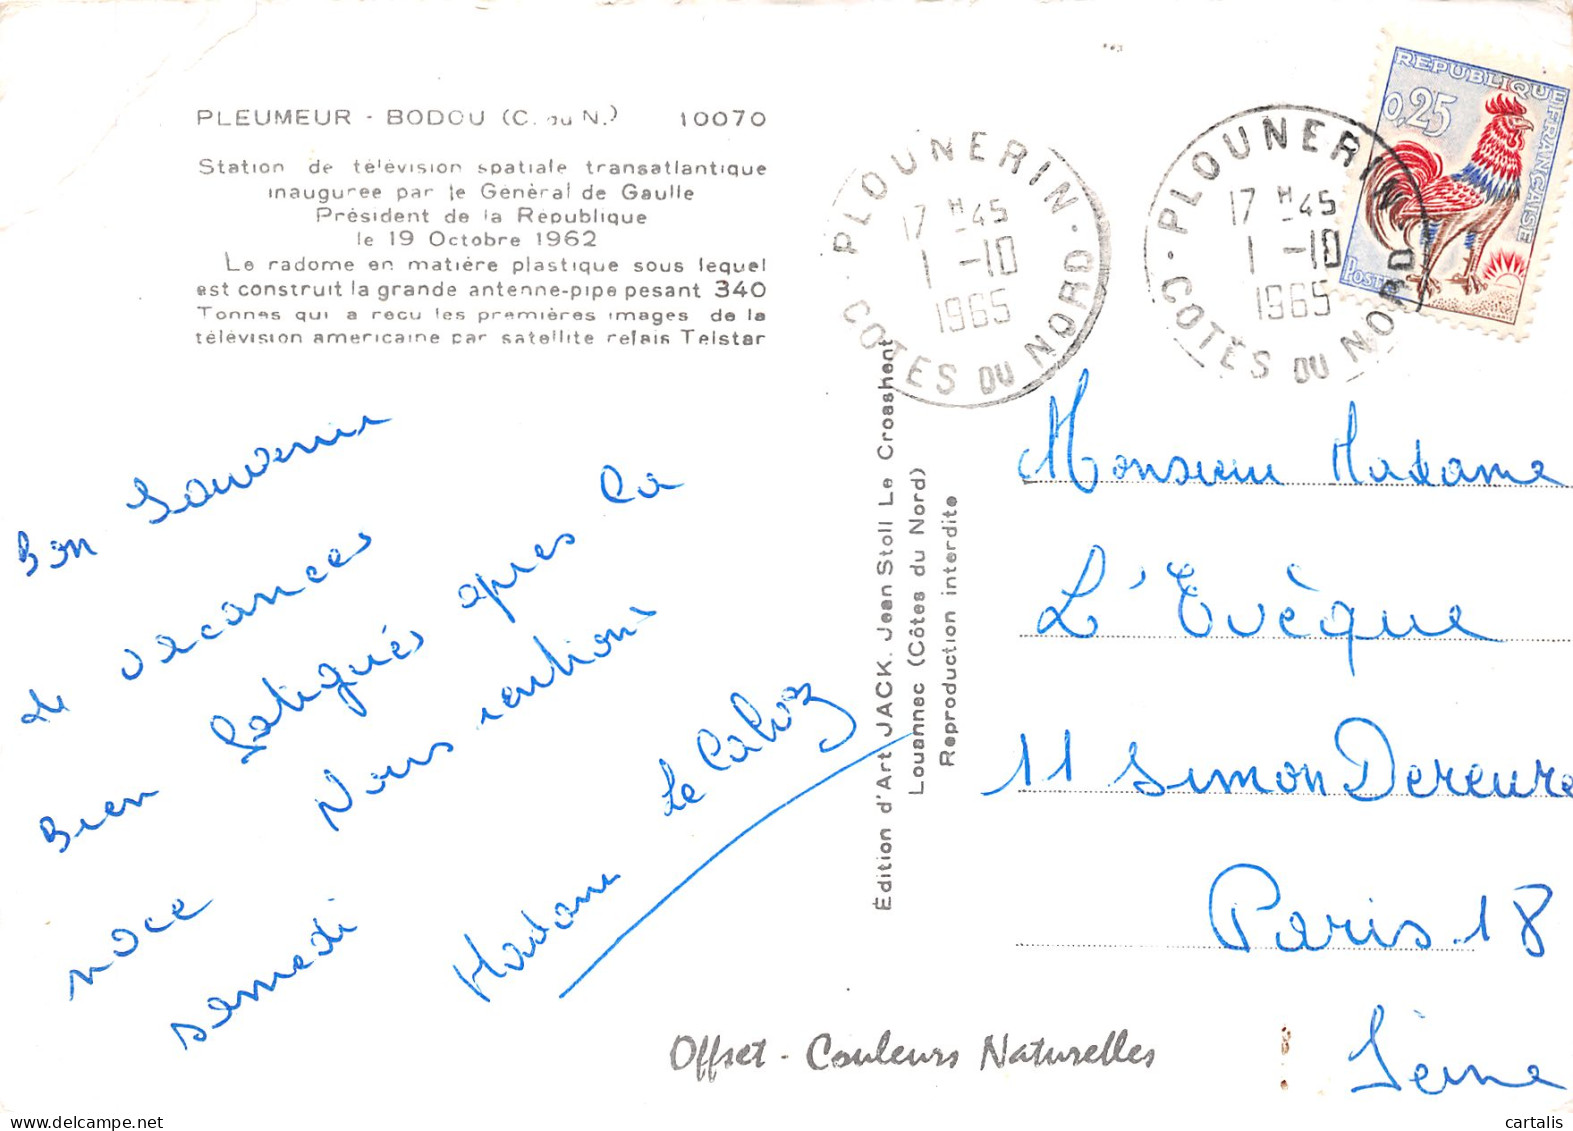 PLEUMEUR - BODOU (C. du N.) 10070
Station de télévision spatiale transatlantique
inaugurée par le Général de Gaulle
Président de la République
le 19 Octobre 1962
Le radome en matière plastique sous lequel
est construit la grande antenne-pipe pesant 340
Tonnes qui a recu les premières images de la
télévision americaine par satellite relais Telstar
Bon Souvenir
de vacances
Bien fatigués apres la
noce Nous rentrons
samedi
Madame Le Calvez
Édition d'Art JACK. Jean Stoll Le Croashent
Louannec (Côtes du Nord)
Reproduction interdite
PLOUNERIN
17 H 45
1 -10
1965
COTES DU NORD
PLOUNERIN
17 H 45
1 -10
1965
COTES DU NORD
REPUBLIQUE FRANÇAISE
0,25
POSTES
Monsieur Madame
L'Evèque
11 Simon Dereure
Paris 18
Seine
Offset - Couleurs Naturelles
www.delcampe.net
cartalis